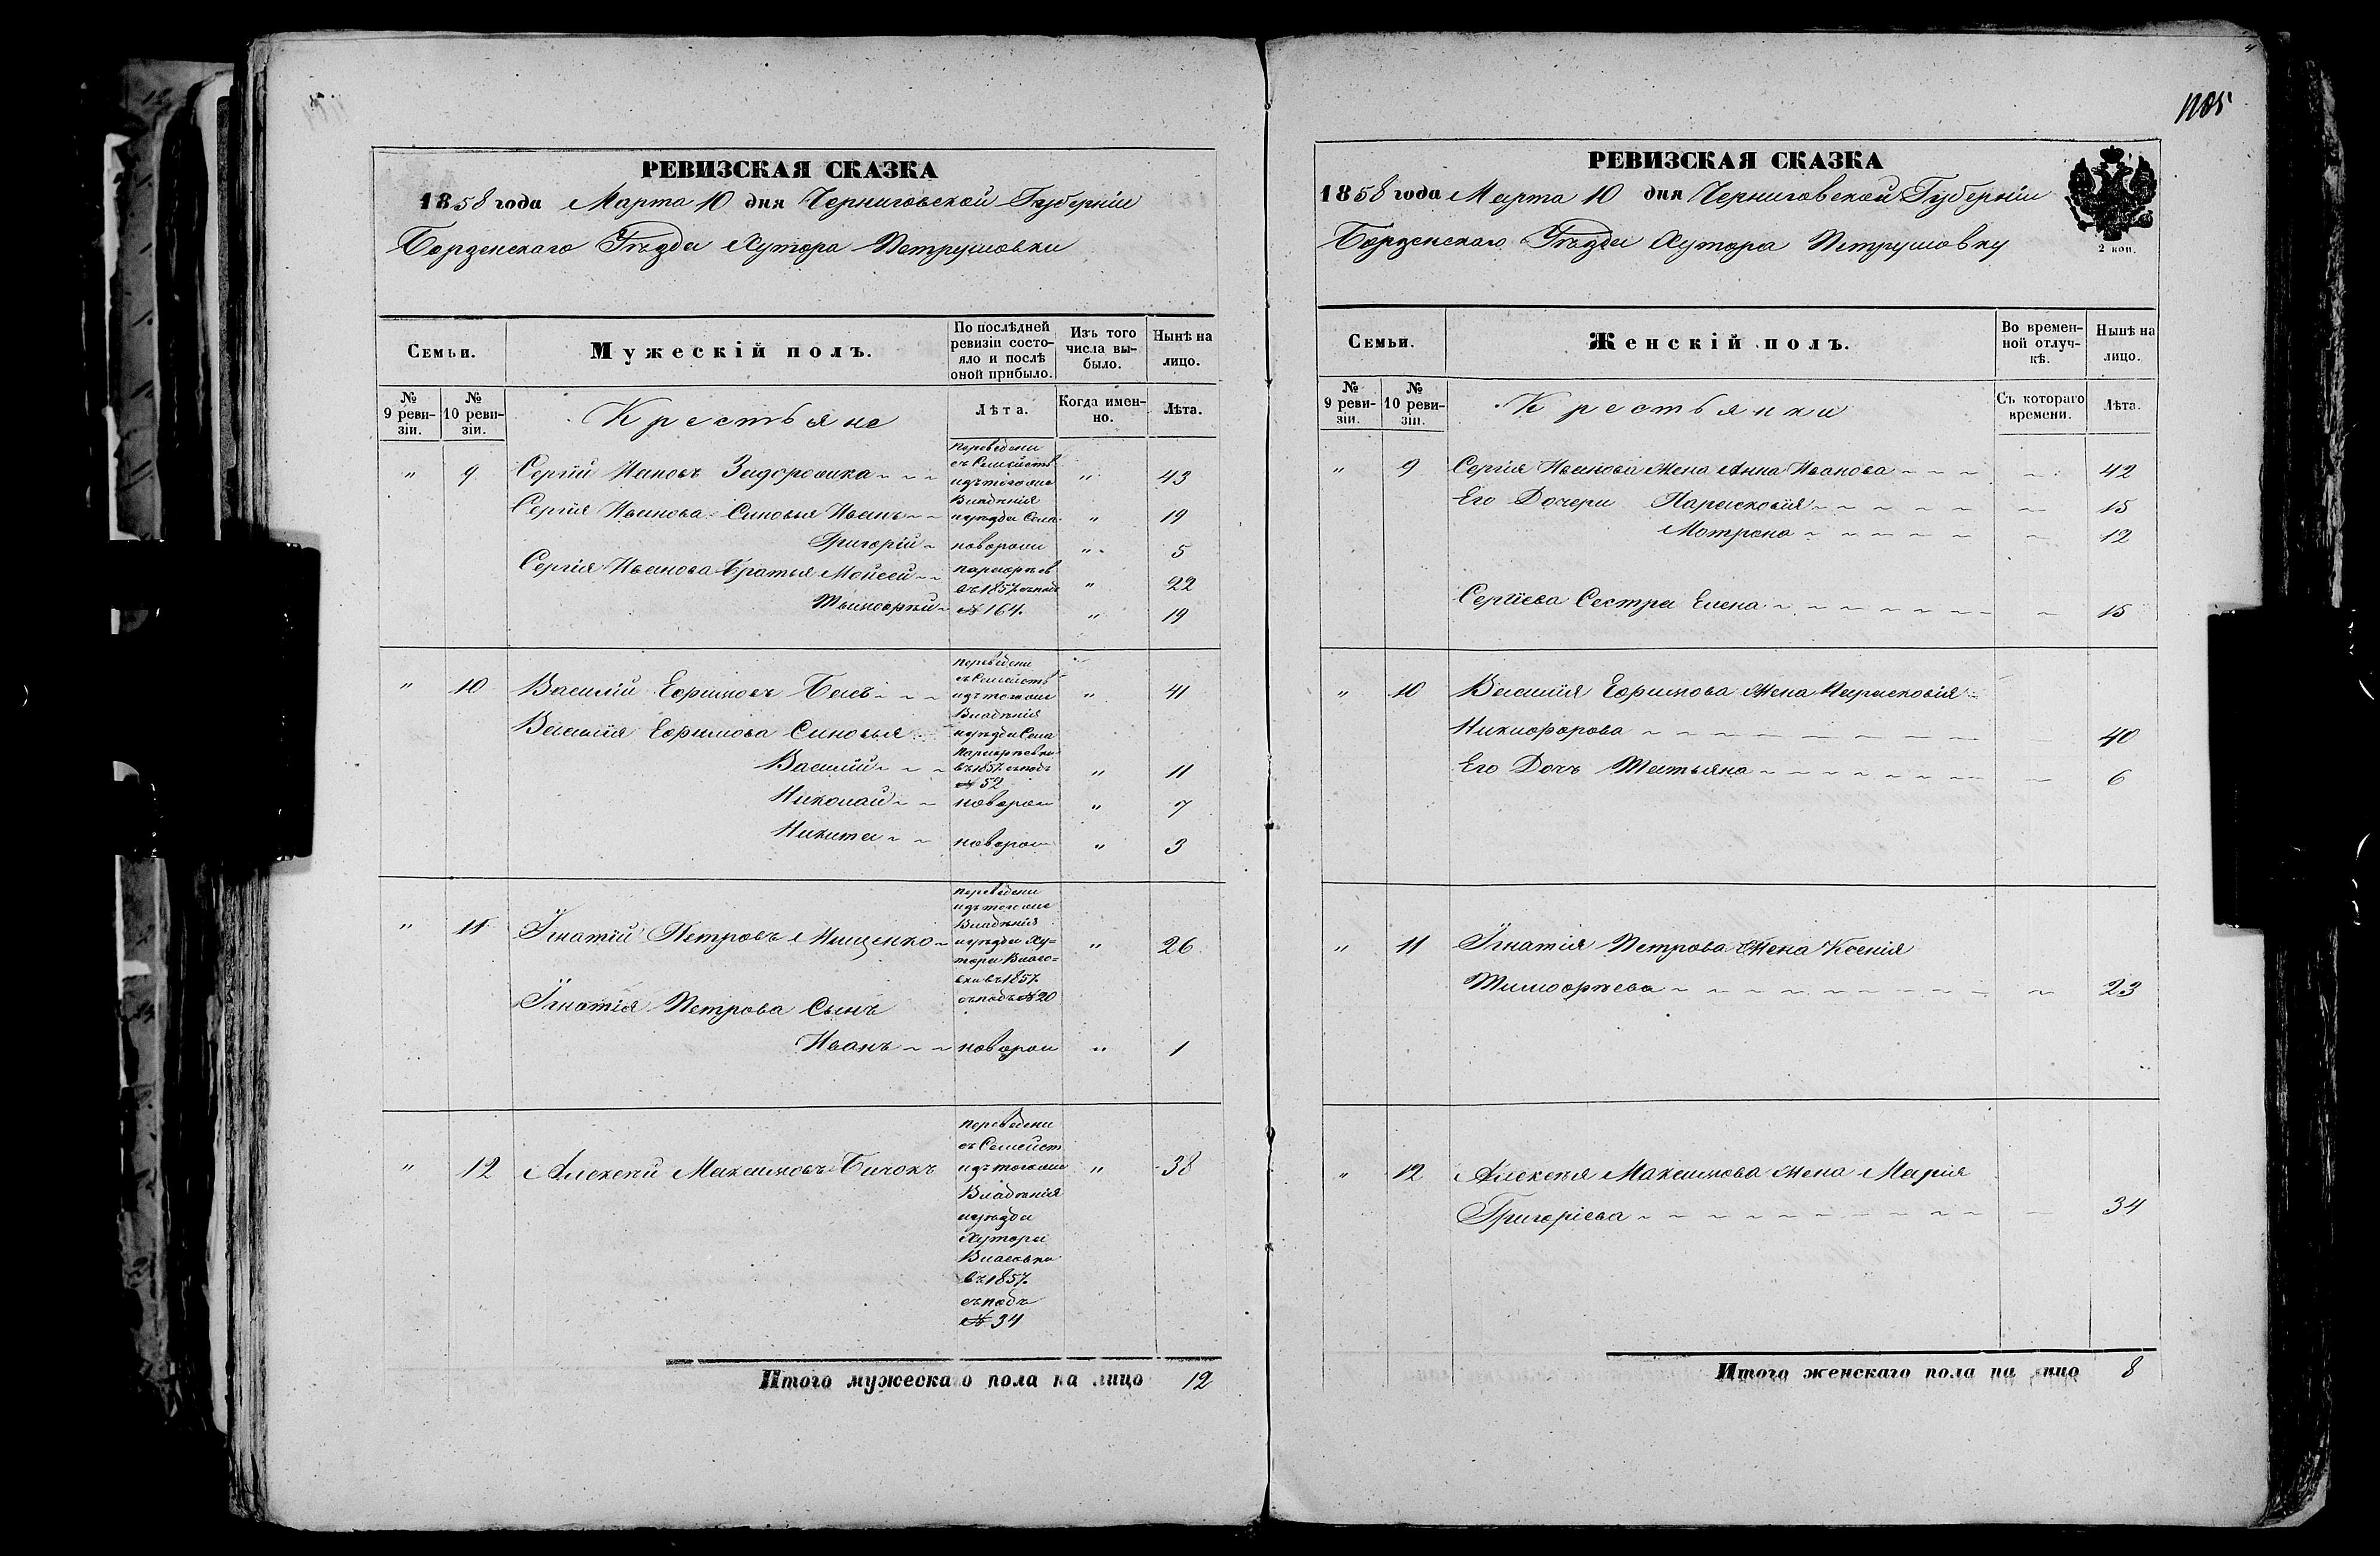 РЕВИЗСКАЯ СКАЗКА
1858 года Марта 10 дня Черниговской Губерніи
Борзенскаго Уѣзда Хутора Петрушовки
Семьи.
Мужескій полъ.
По послѣдней ревизіи состояло и послѣ оной прибыло.
Изъ того числа выбыло.
Нынѣ на лицо.
№ 9 ревизіи.
№ 10 ревизіи.
Крестьяне
Лѣта.
Когда именно.
Лѣта.
" 9 Сергій Ивановъ Задорожка " 43
переведени
съ Семейств
изъ того же
Владѣнія
Сергія Иванова Сыновья Иванъ уѣзда Села " 19
Григорій новорож " 5
Сергія Иванова Братья Моисей " 22
въ 1857 съ подъ
Тимофѣй № 164. " 19
" 10 Василій Ефимовъ Басъ " 41
переведени
съ Семейств
изъ того же
Владѣнія
Василія Ефимова Сыновья уѣзда Села
Василій въ 1857 съ подъ " 11
№ 52
Николай новорож " 7
Никита новорож " 3
" 11 Ігнатій Петровъ Мищенко " 26
переведени
изъ того же
Владѣнія
уѣзда Ху=
тора Власо=
вки въ 1857
съ подъ № 20
Ігнатія Петрова Сынъ
Иванъ новорож " 1
" 12 Алексѣй Максимовъ Бичокъ " 38
переведени
съ Семейст
изъ того же
Владѣнія
уѣзда
Хутора
Власовки
въ 1857.
съ подъ
№ 34
Итого мужескаго пола на лицо 12
1185
РЕВИЗСКАЯ СКАЗКА
1858 года Марта 10 дня Черниговской Губерніи
Борзенскаго Уѣзда Хутора Петрушовку
2 коп.
Семьи.
Женскій полъ.
Во временной отлучкѣ.
Нынѣ на лицо.
№ 9 ревизіи.
№ 10 ревизіи.
Крестьянки
Съ котораго времени.
Лѣта.
" 9 Сергія Иванова Жена Анна Иванова 42
Его Дочери Парасковія 15
Мотрона 12
Сергіева Сестра Елена 15
" 10 Василія Ефимова Жена Парасковія
Никифорова 40
Его Дочъ Татьяна 6
" 11 Ігнатія Петрова Жена Ксенія
Тимофѣева 23
" 12 Алексѣя Максимова Жена Марія
Григоріева 34
Итого женскаго пола на лицо 8